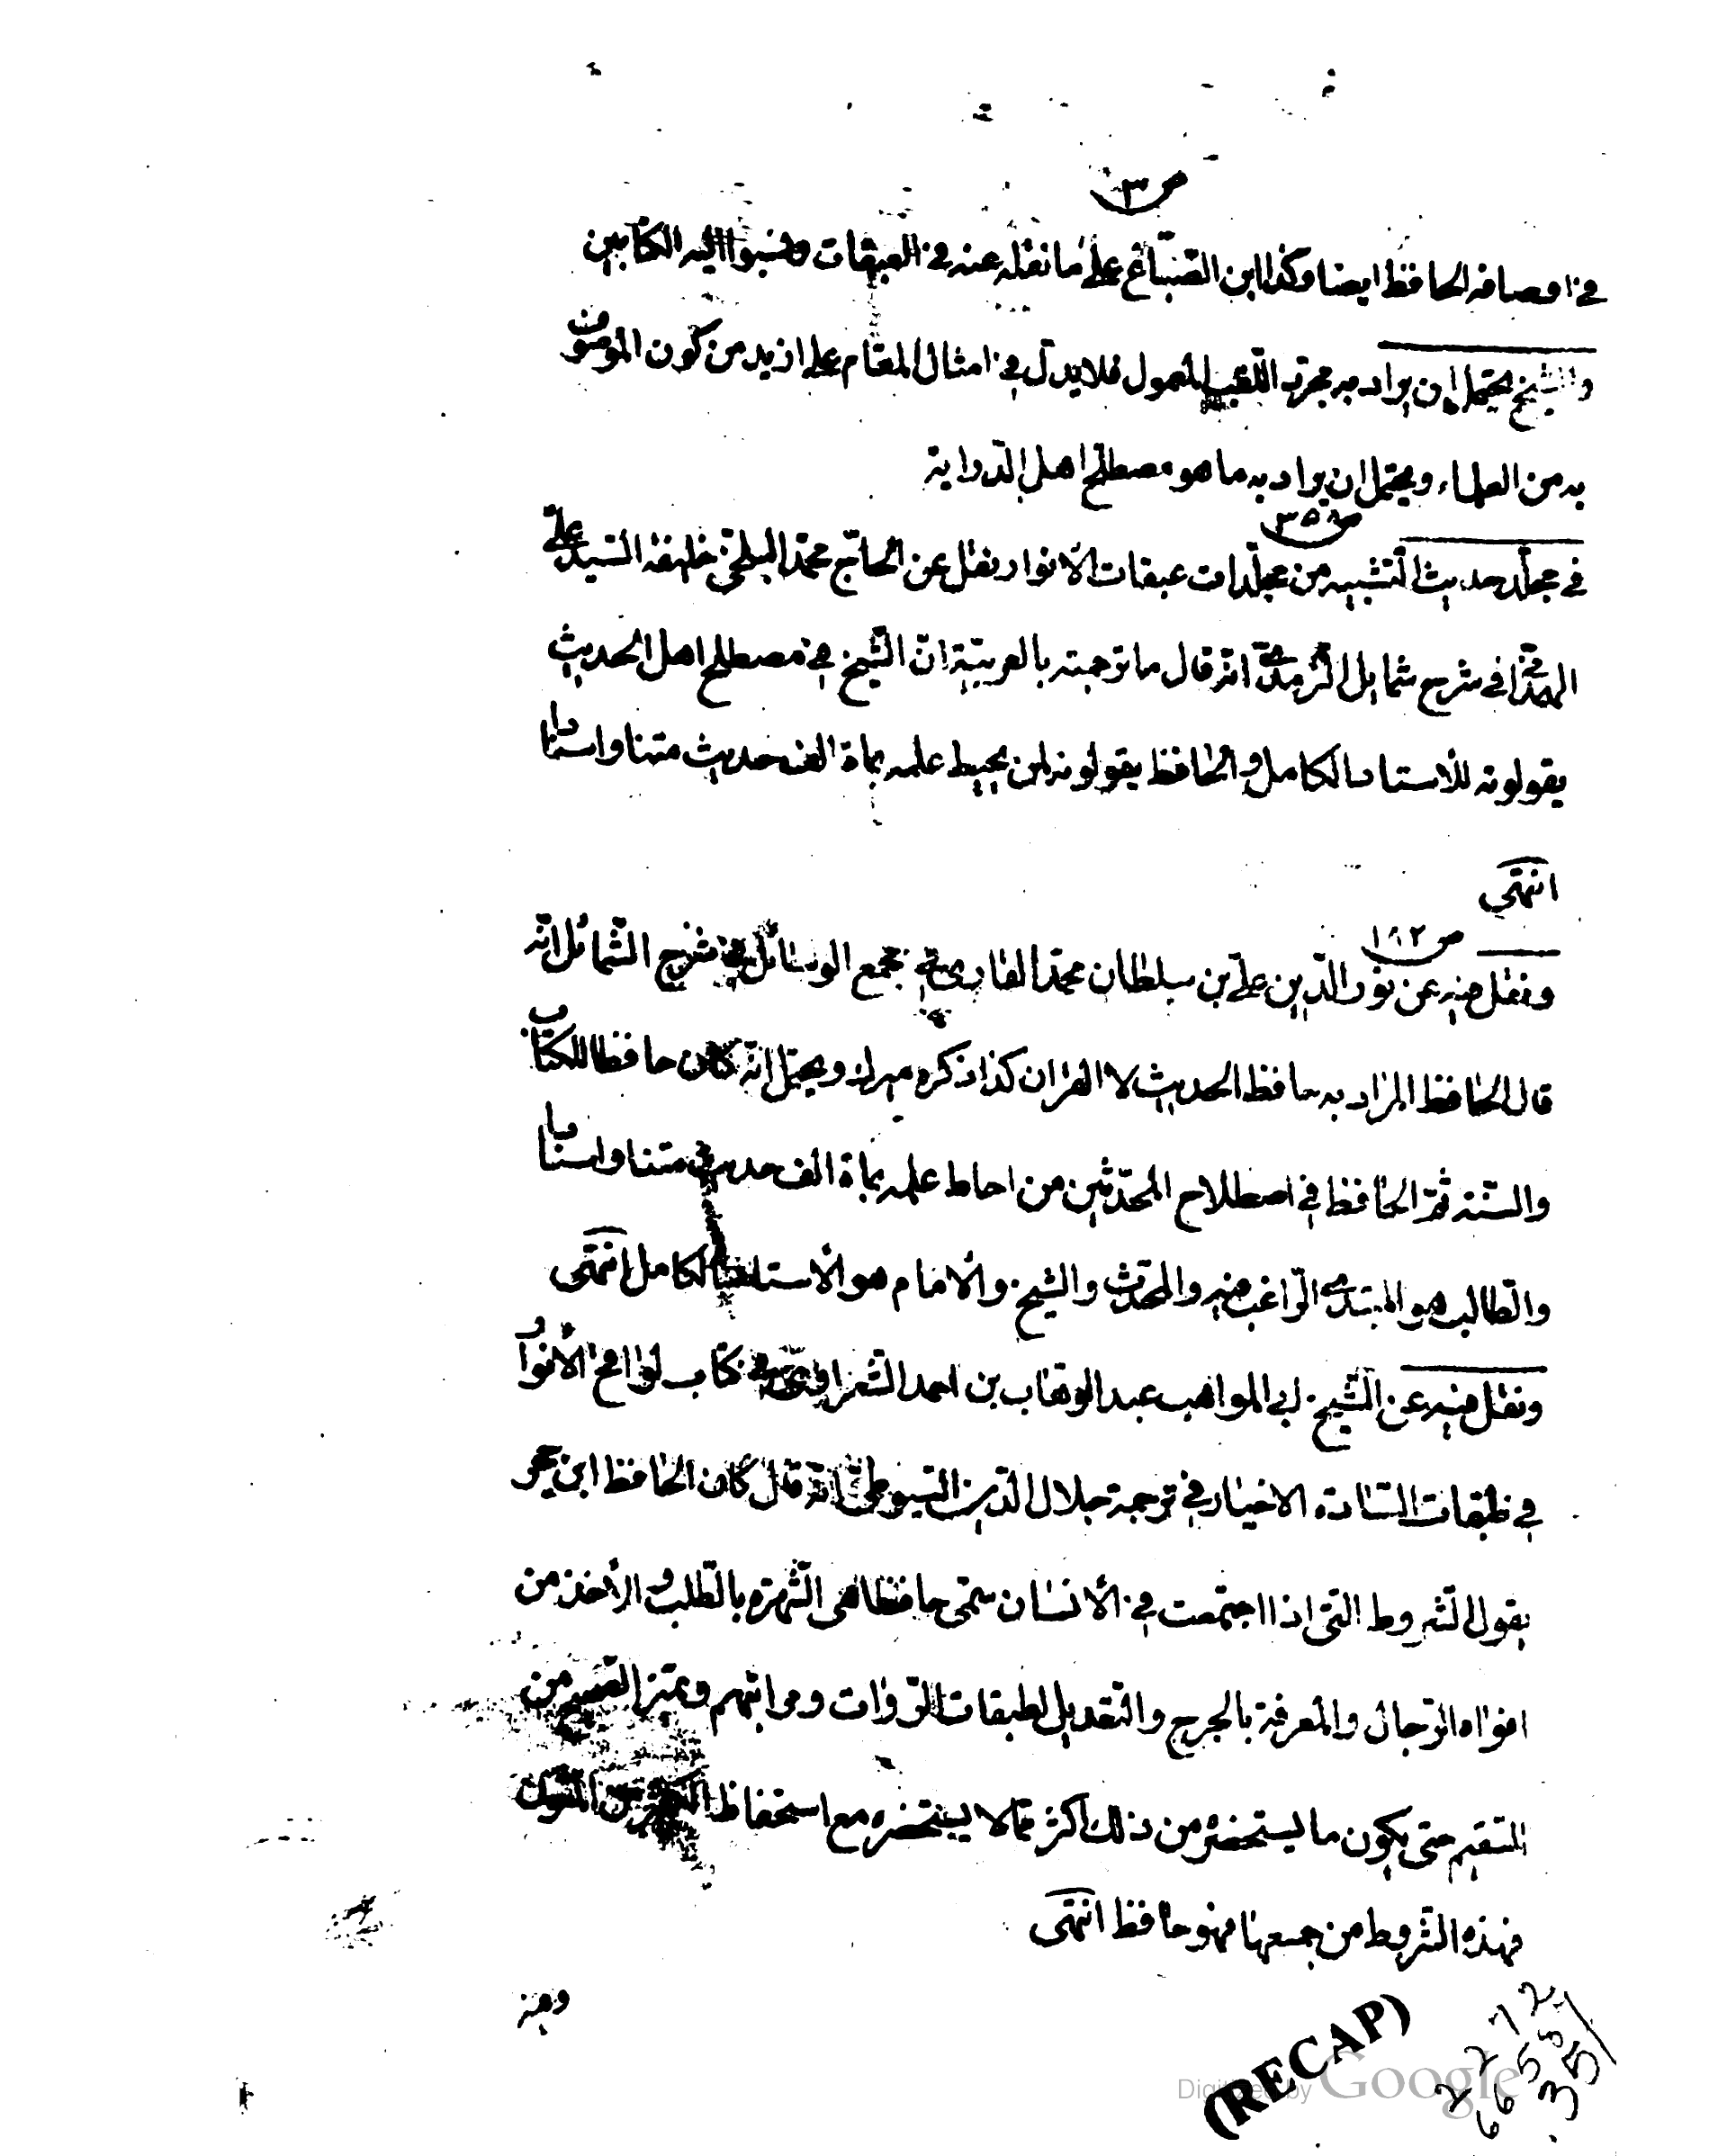 ص٣
في اوصافه الحافظ ايضا وكذا ابن الصّبّاغ على ما نقله عنه في العبقات ونسبوا اليه الكتابين
والشيخ يحتمل ان يراد به مجرد اللقب المعمول فلا يدل في امثال المقام على ازيد من كون الموصوف
به من العلماء ويحتمل ان يراد به ما هو مصطلح اهل الدراية
ص٣٥٨
في مجلد حديث التشبيه من مجلدات عبقات الأنوار نقل عن الحاج محمد البلخي خليفة السيد علي
الهمداني في شرح شمايل الترمذي انه قال ما ترجمته بالعربية ان الشيخ في مصطلح اهل الحديث
يقولونه للأستاد الكامل والحافظ يقولونه لمن يحيط علمه بماة الف حديث متنا واسنادا
انتهى
ص١٨٢
ونقل فيه عن نور الدين علي بن سلطان محمد القاري في جمع الوسائل في شرح الشمائل انه
قال الحافظ المراد به حافظ الحديث لا القران كذا ذكره ميرك ويحتمل انه كان حافظا للكتاب
والسنة ثم الحافظ في اصطلاح المحدثين من احاط علمه بماة الف حديث متنا واسنادا
والطالب هو المبتدي الراغب فيه والمحدث والشيخ والأمام هو الأستاد الكامل انتهى
ونقل فيه عن الشيخ ابي المواهب عبد الوهاب بن احمد الشعراني في كتاب لواقح الأنوار
في طبقات السادة الاخيار في ترجمة جلال الدين السيوطي انه قال كان الحافظ ابن حجر
يقول الشروط التي اذا اجتمعت في الأنسان سمى حافظا هي الشهرة بالطلب والأخذ من
افواه الرجال والمعرفة بالجرح والتعديل لطبقات الروات ومراتبهم وتميز الصحيح من
السقيم حتى يكون ما يستحضره من ذلك اكثر مما لا يستحضره مع استحفاظ الكثير من المتون
فهذه الشروط من جمعها فهو حافظ انتهى
وفيه
(RECAP)
2272
66551
.351
Digitized by Google